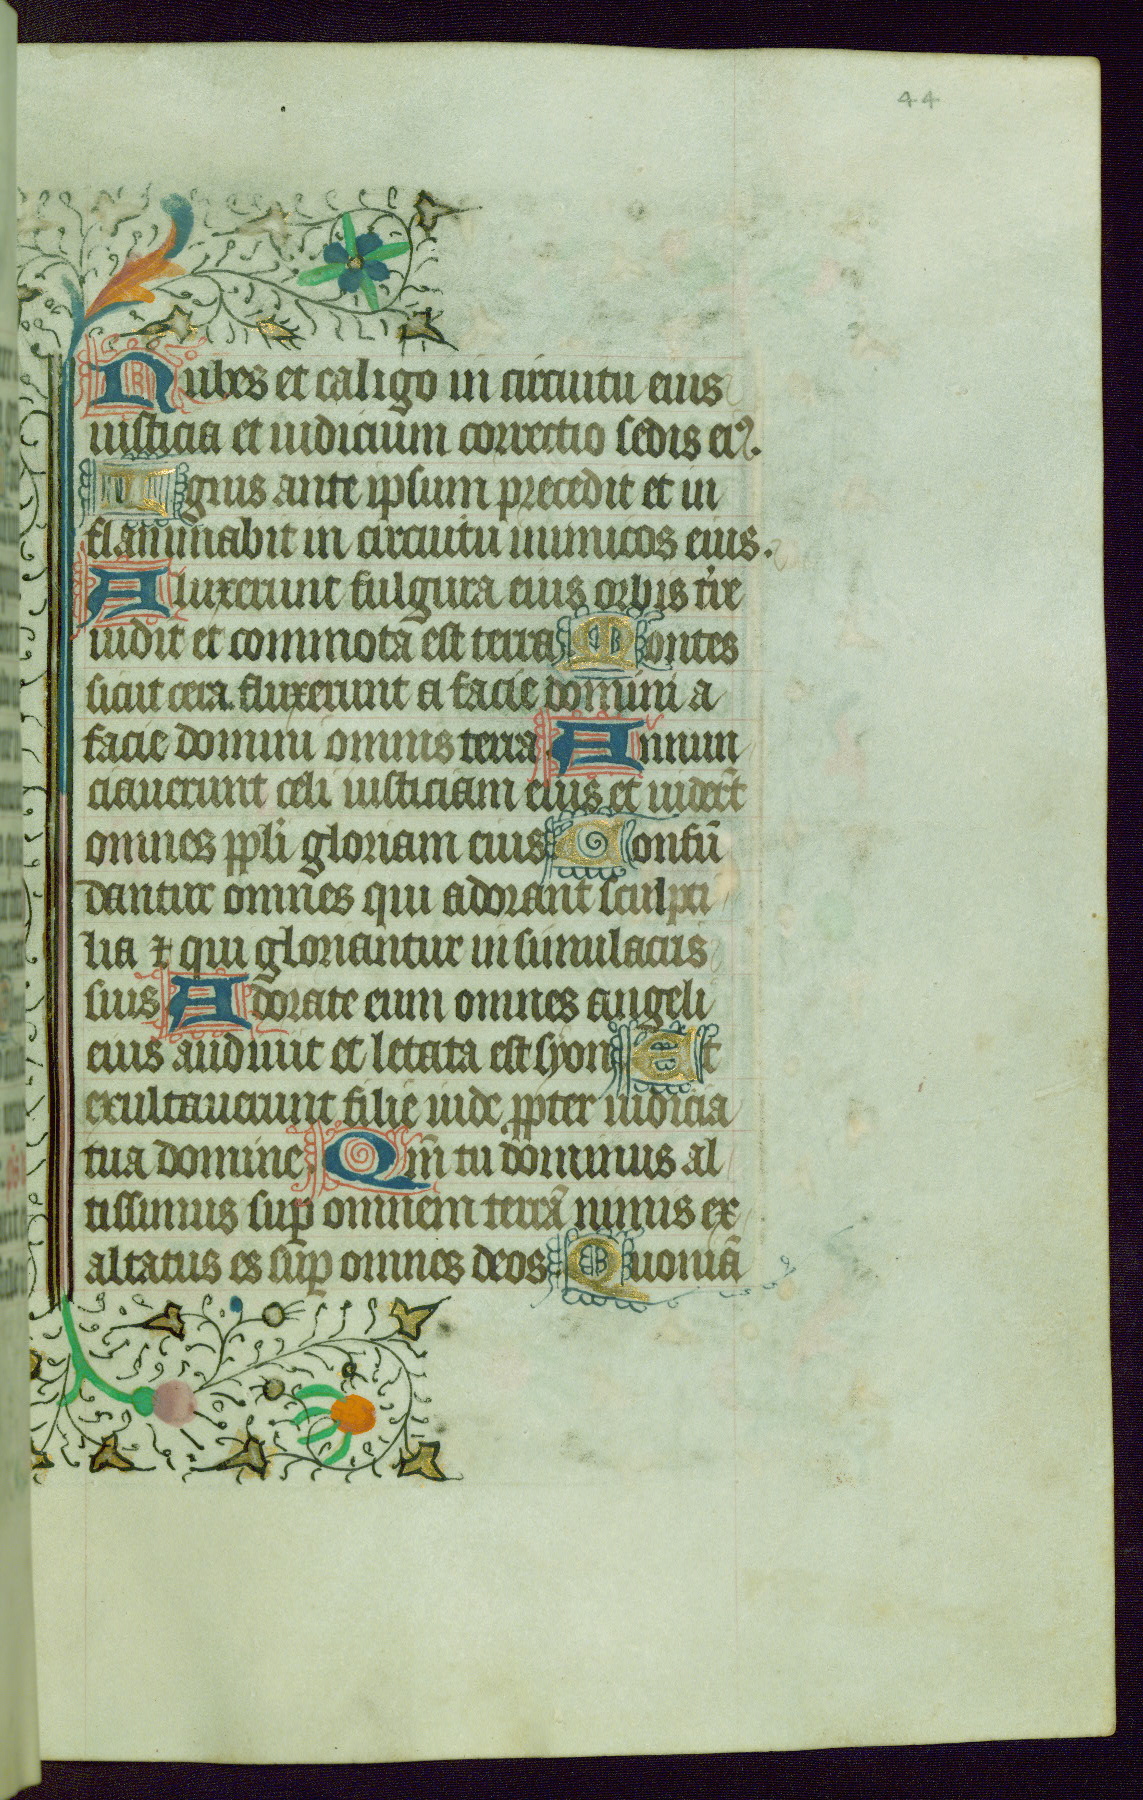 44
Nubes et caligo in circuitu eius
iusticia et iudicium correctio sedis eiꝰ.
Ignis ante ipsum precedit et in
flammabit in circuitu inimicos eius.
Aluxerunt fulgura eius orbis t're
uidit et commota est terra Montes
sicut cera fluxerunt a facie domini a
facie domini omnis terra Annun
ciauerunt celi iusticiam eius et uider̄t
omnes ppl'i gloriam eius Confū
dantur omnes qui adorant sculpti
lia ⁊ qui gloriantur in simulacris
suis Adorate eum omnes angeli
eius audiuit et letata est syon Et
exultauerunt filie iude ꝓpter iudicia
tua domine Qm̄ tu dominus al
tissimus suꝑ omnem terrā nimis ex
altatus es suꝑ omnes deos Quoniā